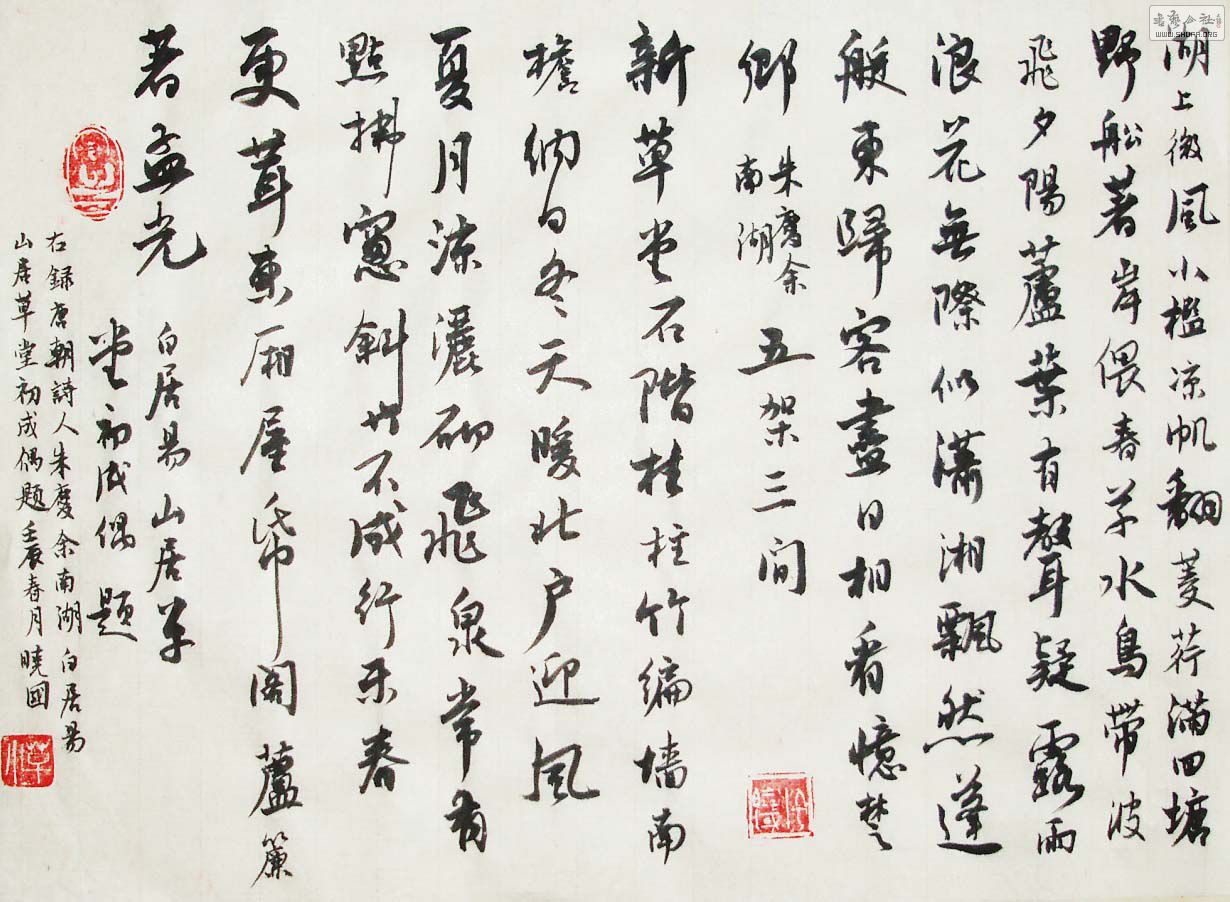 湖上微風小檻凉帆翻菱荇滿回塘
野船著岸偎春草水鳥帶波
飛夕陽蘆葉有聲疑露雨
浪花無際似瀟湘飄然蓬
艇東歸客盡日相看憶楚
鄉
朱慶余
南湖
五架三間
新草堂石階桂柱竹編墻南
檐納日冬天暖北户迎風
夏月凉灑砌飛泉常有
點拂窻斜竹不成行来春
更葺東厢屋帋閣蘆簾
著孟光
白居易山居草
堂初成偶題
右録唐朝詩人朱慶余南湖白居易
山居草堂初成偶題壬辰春月曉國
書藝公社
WWW.SHUFA.ORG